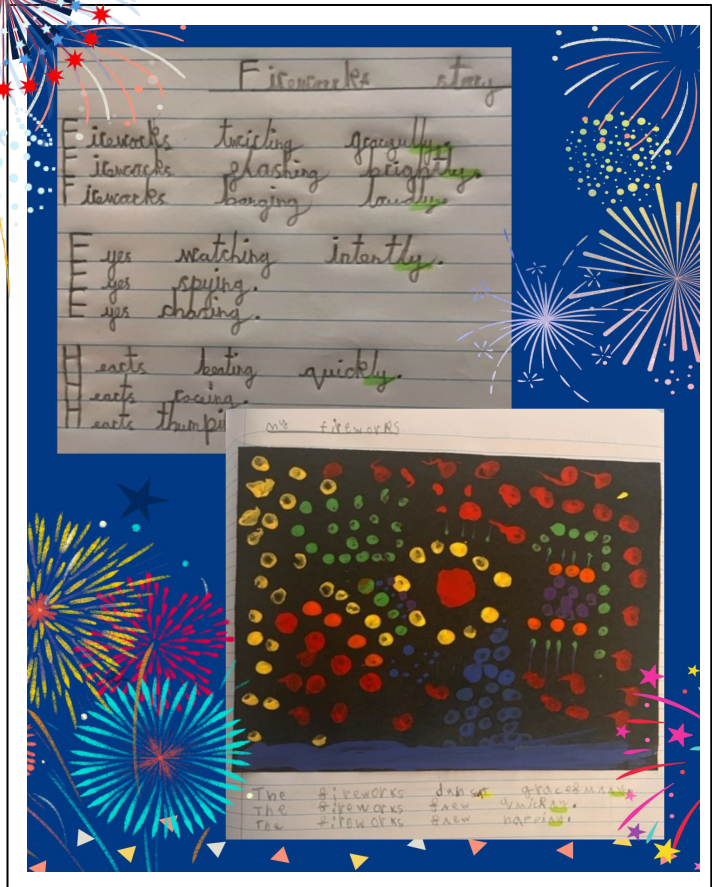 Fireworks story
Fireworks twirling gracefully.
Fireworks flashing brightly.
Fireworks banging loudly.
Eyes watching intently.
Eyes spying.
Eyes sharing.
Hearts beating quickly.
Hearts racing.
Hearts thumpi
my fireworks
The fireworks dans gracefully.
The fireworks flew quickly.
The fireworks flew happily.